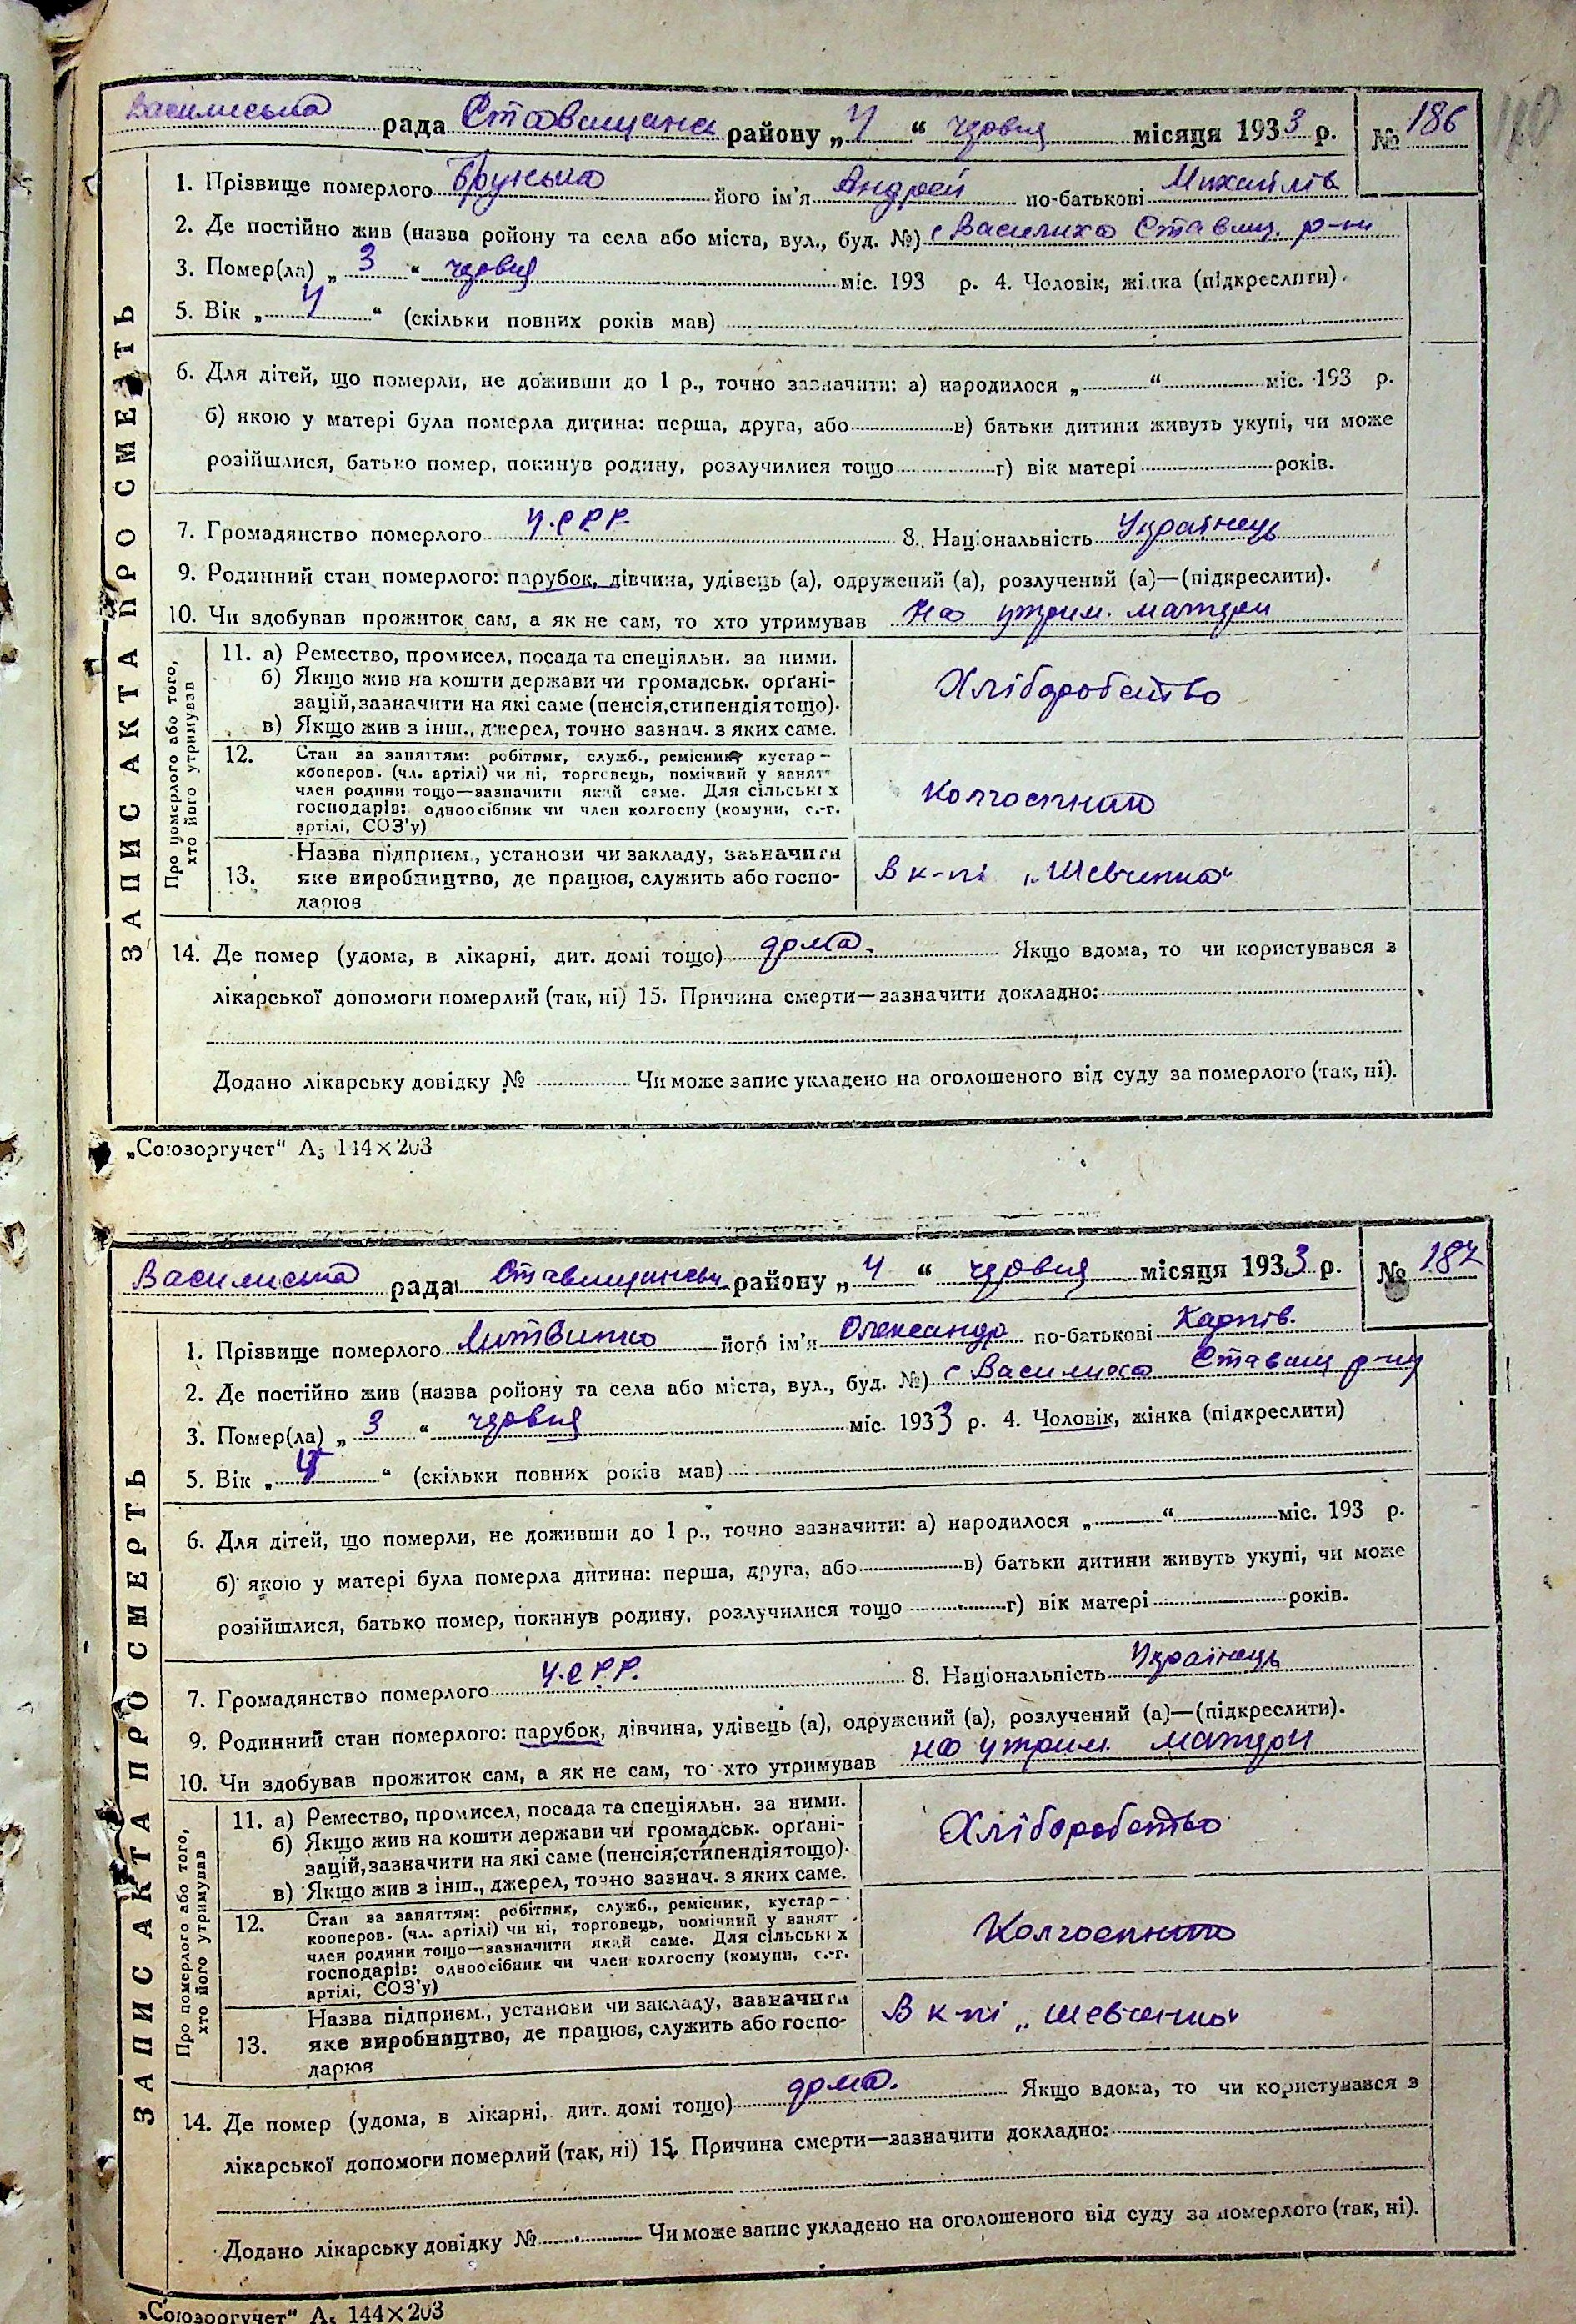 Василиська рада Ставищанськ району „4“ червня місяця 1933 р. № 186
1. Прізвище померлого Брунька його ім'я Андрей по-батькові Михайлів
2. Де постійно жив (назва ройону та села або міста, вул., буд. №) с Василиха Ставищ. р-ну
3. Помер(ла) „3“ червня міс. 193 р. 4. Чоловік, жінка (підкреслити).
5. Вік „4“ (скільки повних років мав)
6. Для дітей, що померли, не доживши до 1 р., точно зазначити: а) народилося „ “ міс. 193 р.
б) якою у матері була померла дитина: перша, друга, або в) батьки дитини живуть укупі, чи може
розійшлися, батько помер, покинув родину, розлучилися тощо г) вік матері років.
7. Громадянство померлого У.С.Р.Р. 8. Національність Українець
9. Родинний стан померлого: парубок, дівчина, удівець (а), одружений (а), розлучений (а)—(підкреслити).
10. Чи здобував прожиток сам, а як не сам, то хто утримував На утрим. матери
ЗАПИС АКТА ПРО СМЕРТЬ
Про померлого або того,
хто його утримував
11. а) Ремество, промисел, посада та спеціяльн. за ними.
б) Якщо жив на кошти держави чи громадськ. орґані-
зацій, зазначити на які саме (пенсія, стипендія тощо).
в) Якщо жив з інш., джерел, точно зазнач. з яких саме.
Хліборобство
12. Стан за заняттям: робітник, служб., ремісник, кустар—
кооперов. (чл. артілі) чи ні, торговець, помічний у занят
член родини тощо—зазначити який саме. Для сільськіх
господарів: одноосібник чи член колгоспу (комуни, с.-г.
артілі, СОЗ'у)
Колгоспник
13. Назва підприєм., установи чи закладу, зазначити
яке виробництво, де працює, служить або госпо-
дарює
В к-пі „Шевченка“
14. Де помер (удома, в лікарні, дит. домі тощо) дома. Якщо вдома, то чи користувався з
лікарської допомоги померлий (так, ні) 15. Причина смерти—зазначити докладно:
Додано лікарську довідку № Чи може запис укладено на оголошеного від суду за померлого (так, ні).
„Союзоргучет“ А5 144×203
Василиська рада Ставищанськ району „4“ червня місяця 1933 р. № 187
1. Прізвище померлого Литвинко його ім'я Олександр по-батькові Карпів.
2. Де постійно жив (назва ройону та села або міста, вул., буд. №) с Василиха Ставищ р-ну
3. Помер(ла) „3“ червня міс. 1933 р. 4. Чоловік, жінка (підкреслити)
5. Вік „ “ (скільки повних років мав)
6. Для дітей, що померли, не доживши до 1 р., точно зазначити: а) народилося „ “ міс. 193 р.
б) якою у матері була померла дитина: перша, друга, або в) батьки дитини живуть укупі, чи може
розійшлися, батько помер, покинув родину, розлучилися тощо г) вік матері років.
7. Громадянство померлого У.С.Р.Р. 8. Національність Українець
9. Родинний стан померлого: парубок, дівчина, удівець (а), одружений (а), розлучений (а)—(підкреслити).
10. Чи здобував прожиток сам, а як не сам, то хто утримував на утрим. матери
ЗАПИС АКТА ПРО СМЕРТЬ
Про померлого або того,
хто його утримував
11. а) Ремество, промисел, посада та спеціяльн. за ними.
б) Якщо жив на кошти держави чи громадськ. орґані-
зацій, зазначити на які саме (пенсія, стипендія тощо).
в) Якщо жив з інш., джерел, точно зазнач. з яких саме.
Хліборобство
12. Стан за заняттям: робітник, служб., ремісник, кустар—
кооперов. (чл. артілі) чи ні, торговець, помічний у занят
член родини тощо—зазначити який саме. Для сільськіх
господарів: одноосібник чи член колгоспу (комуни, с.-г.
артілі, СОЗ'у)
Колгоспник
13. Назва підприєм., установи чи закладу, зазначити
яке виробництво, де працює, служить або госпо-
дарює
В к-пі „Шевченка“
14. Де помер (удома, в лікарні, дит. домі тощо) дома. Якщо вдома, то чи користувався з
лікарської допомоги померлий (так, ні) 15. Причина смерти—зазначити докладно:
Додано лікарську довідку № Чи може запис укладено на оголошеного від суду за померлого (так, ні).
„Союзоргучет“ А5 144×203